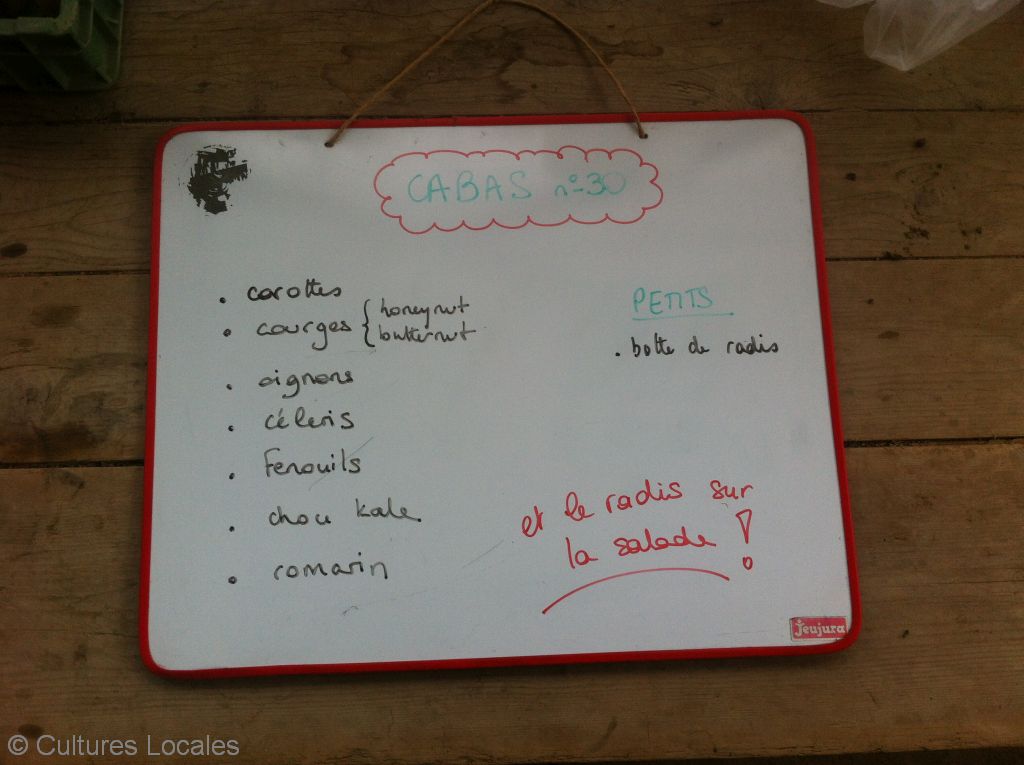 CABAS n°30
• carottes
• courges { honeynut
butternut
• oignons
• céleris
• Fenouils
• chou kale
• romarin
PETITS
• botte de radis
et le radis sur
la salade !
jeujura
© Cultures Locales